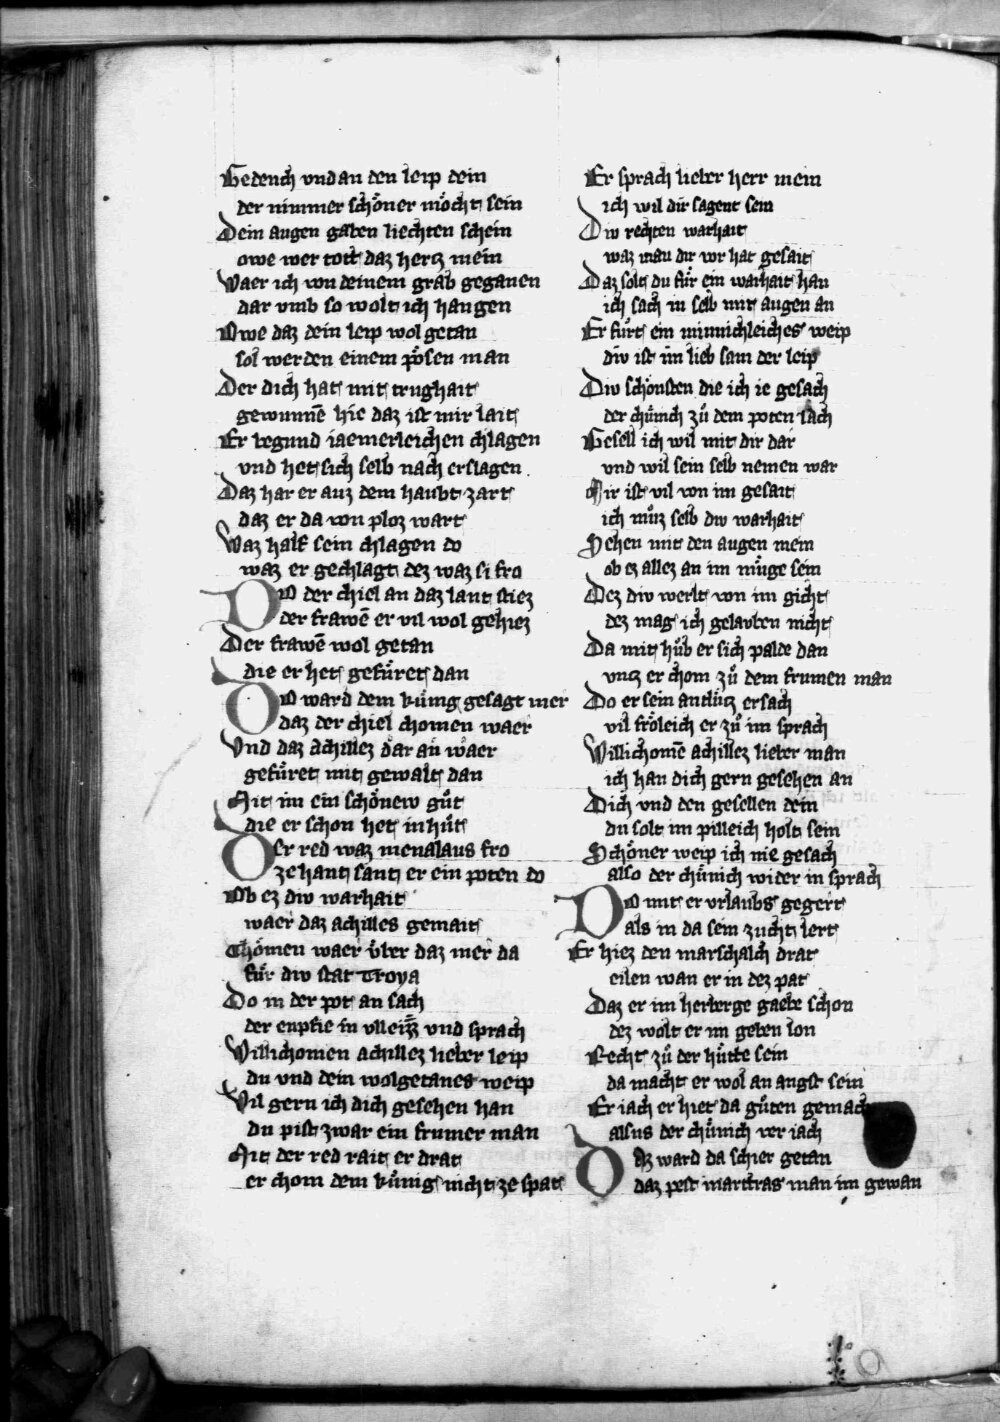 Gedench vnd an den leip dein
der nimmer schoͤner moͤcht sein
Dein augen gaben liechten schein
owe wer tott daz hertz mein
Waer ich von deinem grab gegangen
dar vmb so wolt ich hangen
Owe daz dein leip wol getan
sol werden einem poͤsen man
Der dich hat mit trughait
gewunnē hie daz ist mir lait
Er begund iaemerleichen chlagen
vnd het sich selb nach erslagen
Daz har er auz dem haubt zart
daz er da von ploz wart
Waz half sein chlagen do
waz er gechlagt dez waz si fro
DO der chiel an daz lant stiez
der frawē er vil wol gehiez
Der frawē wol getan
die er het gefuͤret dan
DO ward dem kuͤnig gesagt mer
daz der chiel chomen waer
Vnd daz Achillez dar an waer
gefuͤret mit gewalt dan
Mit im ein schoͤnew guͤt
die er schon het in huͤt
Der red waz menalaus fro
ze hant sant er ein poten do
Ob ez div warhait
waer daz achilles gemait
Choͤmen waer vͤber daz mer da
fuͤr div stat Troya
Do in der pot an sach
der enpfie in vlleizz vnd sprach
Willichomen achillez lieber leip
du vnd dein wolgetanes weip
Vil gern ich dich gesehen han
du pist zwar ein frumer man
Mit der red rait er drat
er chom dem kuͤnig nicht ze spat
Er sprach lieber herr mein
ich wil dir sagent sein
Div rechten warhait
waz man dir vor hat gesait
Daz solt du fuͤr ein warhait han
ich sach in selb mit augen an
Er fuͤrt ein minnichleiches weip
div ist im lieb sam der leip
Div schoͤnsten die ich ie gesach
der chuͤnich zuͦ dem poten sach
Gesell ich wil mit dir dar
vnd wil sein selb nemen war
Mir ist vil von im gesait
ich muͦz selb div warhait
Sehen mit den augen mein
ob ez allez an im muͤge sein
Dez div werlt von im gicht
dez mag ich gelauben nicht
Da mit huͦb er sich palde dan
vntz er chom zuͦ dem frumen man
Do er sein antluͤtz ersach
vil froͤleich er zuͦ im sprach
Willichomē achillez lieber man
ich han dich gern gesehen an
Dich vnd den gesellen dein
du solt im pilleich holt sein
Schoͤner weip ich nie gesach
also der chuͤnich wider in sprach
DO mit er vrlaubs gegert
als in da sein zucht lert
Er hiez den marschalch drat
eilen wan er in dez pat
Daz er im herberge gaebe schon
dez wolt er im geben lon
Recht zuͦ der huͤtte sein
da macht er wol an angst sein
Er iach er hiet da guͦten gemach
alsus der chuͤnich ver iach
Daz ward da schier getan
daz pest martfras man im gewan